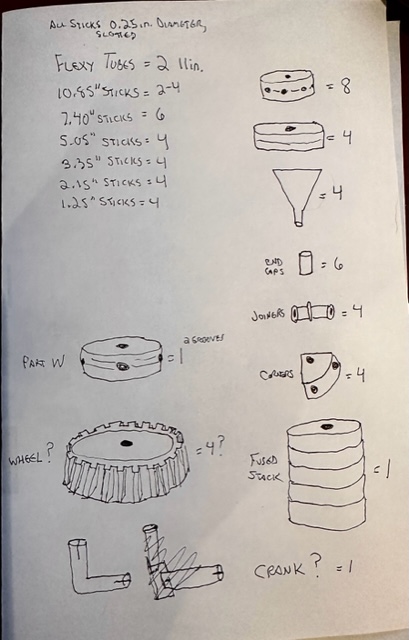 ALL STICKS 0.25 in. DIAMETER,
SLOTTED
FLEXY TUBES = 2 11in.
10.85" STICKS = 2-4
7.40" STICKS = 6
5.05" STICKS = 4
3.35" STICKS = 4
2.15" STICKS = 4
1.25" STICKS = 4
= 8
= 4
= 4
END
CAPS = 6
JOINERS = 4
PART W = 1 2 GROOVES
CORNERS = 4
WHEEL? = 4?
FUSED
STACK = 1
CRANK? = 1